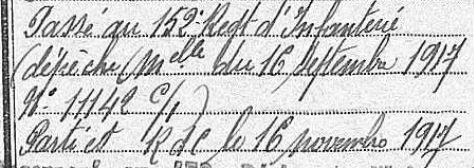 Passé au 152e Regt d'Infanterie
(dépêche Mlle du 16 Septembre 1917
N° 11142 C/1)
Parti et le 16 novembre 1917